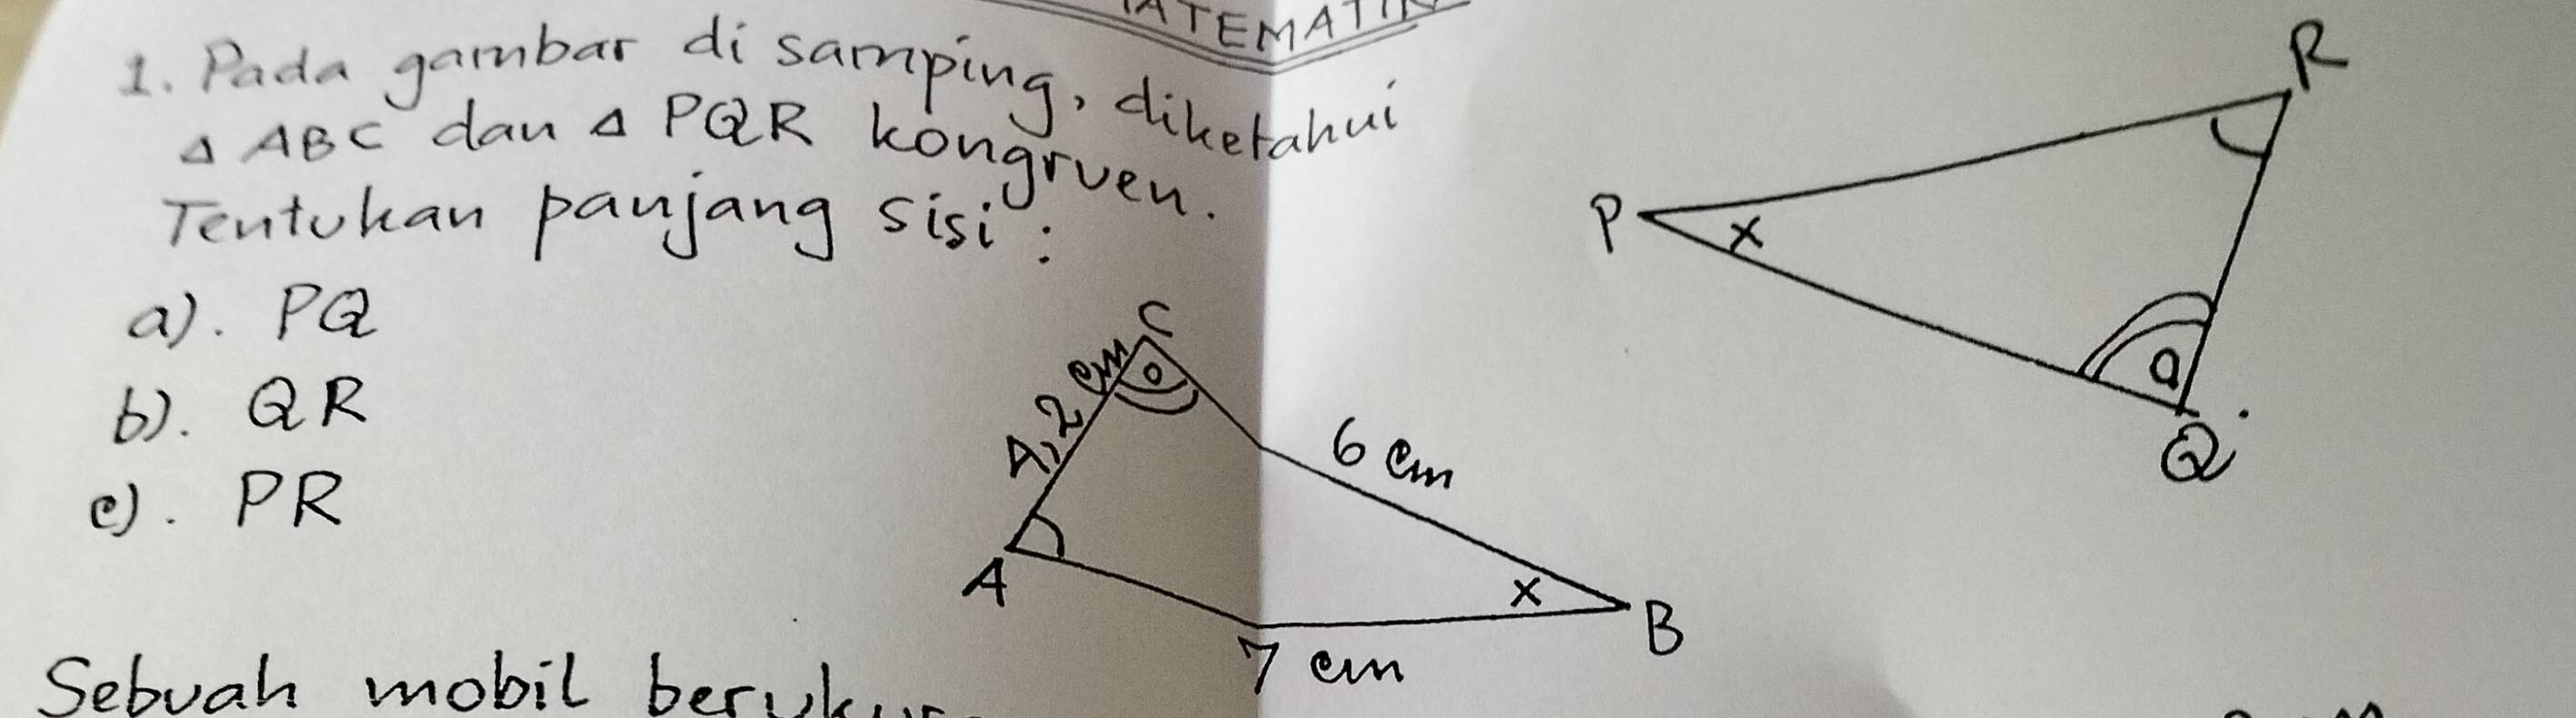 MATEMATIK
1. Pada gambar di samping, diketahui
△ ABC dan △ PQR kongruen.
Tentukan panjang sisi :
a). PQ
b). QR
c). PR
R
P
x
Q
C
4,2 cm
6 cm
A
x
B
7 cm
Sebuah mobil